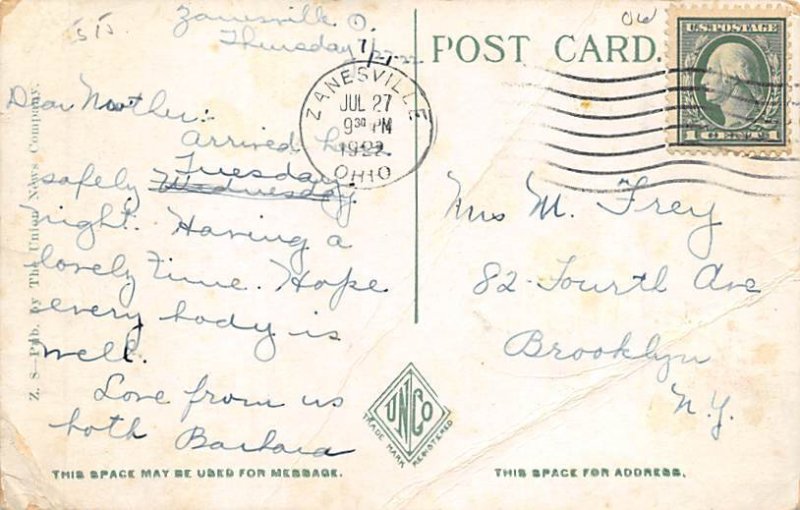 515
Zanesville O.
Thursday
Dear Mother:
arrived here
Tuesday
safely Wednesday
night. Having a
lovely time. Hope
every body is
well.
Love from us
both Barbara
Z. 8—Pub. by The Union News Company.
THIS SPACE MAY BE USED FOR MESSAGE.
POST CARD.
ZANESVILLE
JUL 27
9 30 PM
1922
OHIO
U.S. POSTAGE
1 CENT 1
Mrs M. Frey
82-Fourth Ave
Brooklyn
N.Y.
UNCO
TRADE MARK
REGISTERED
THIS SPACE FOR ADDRESS.